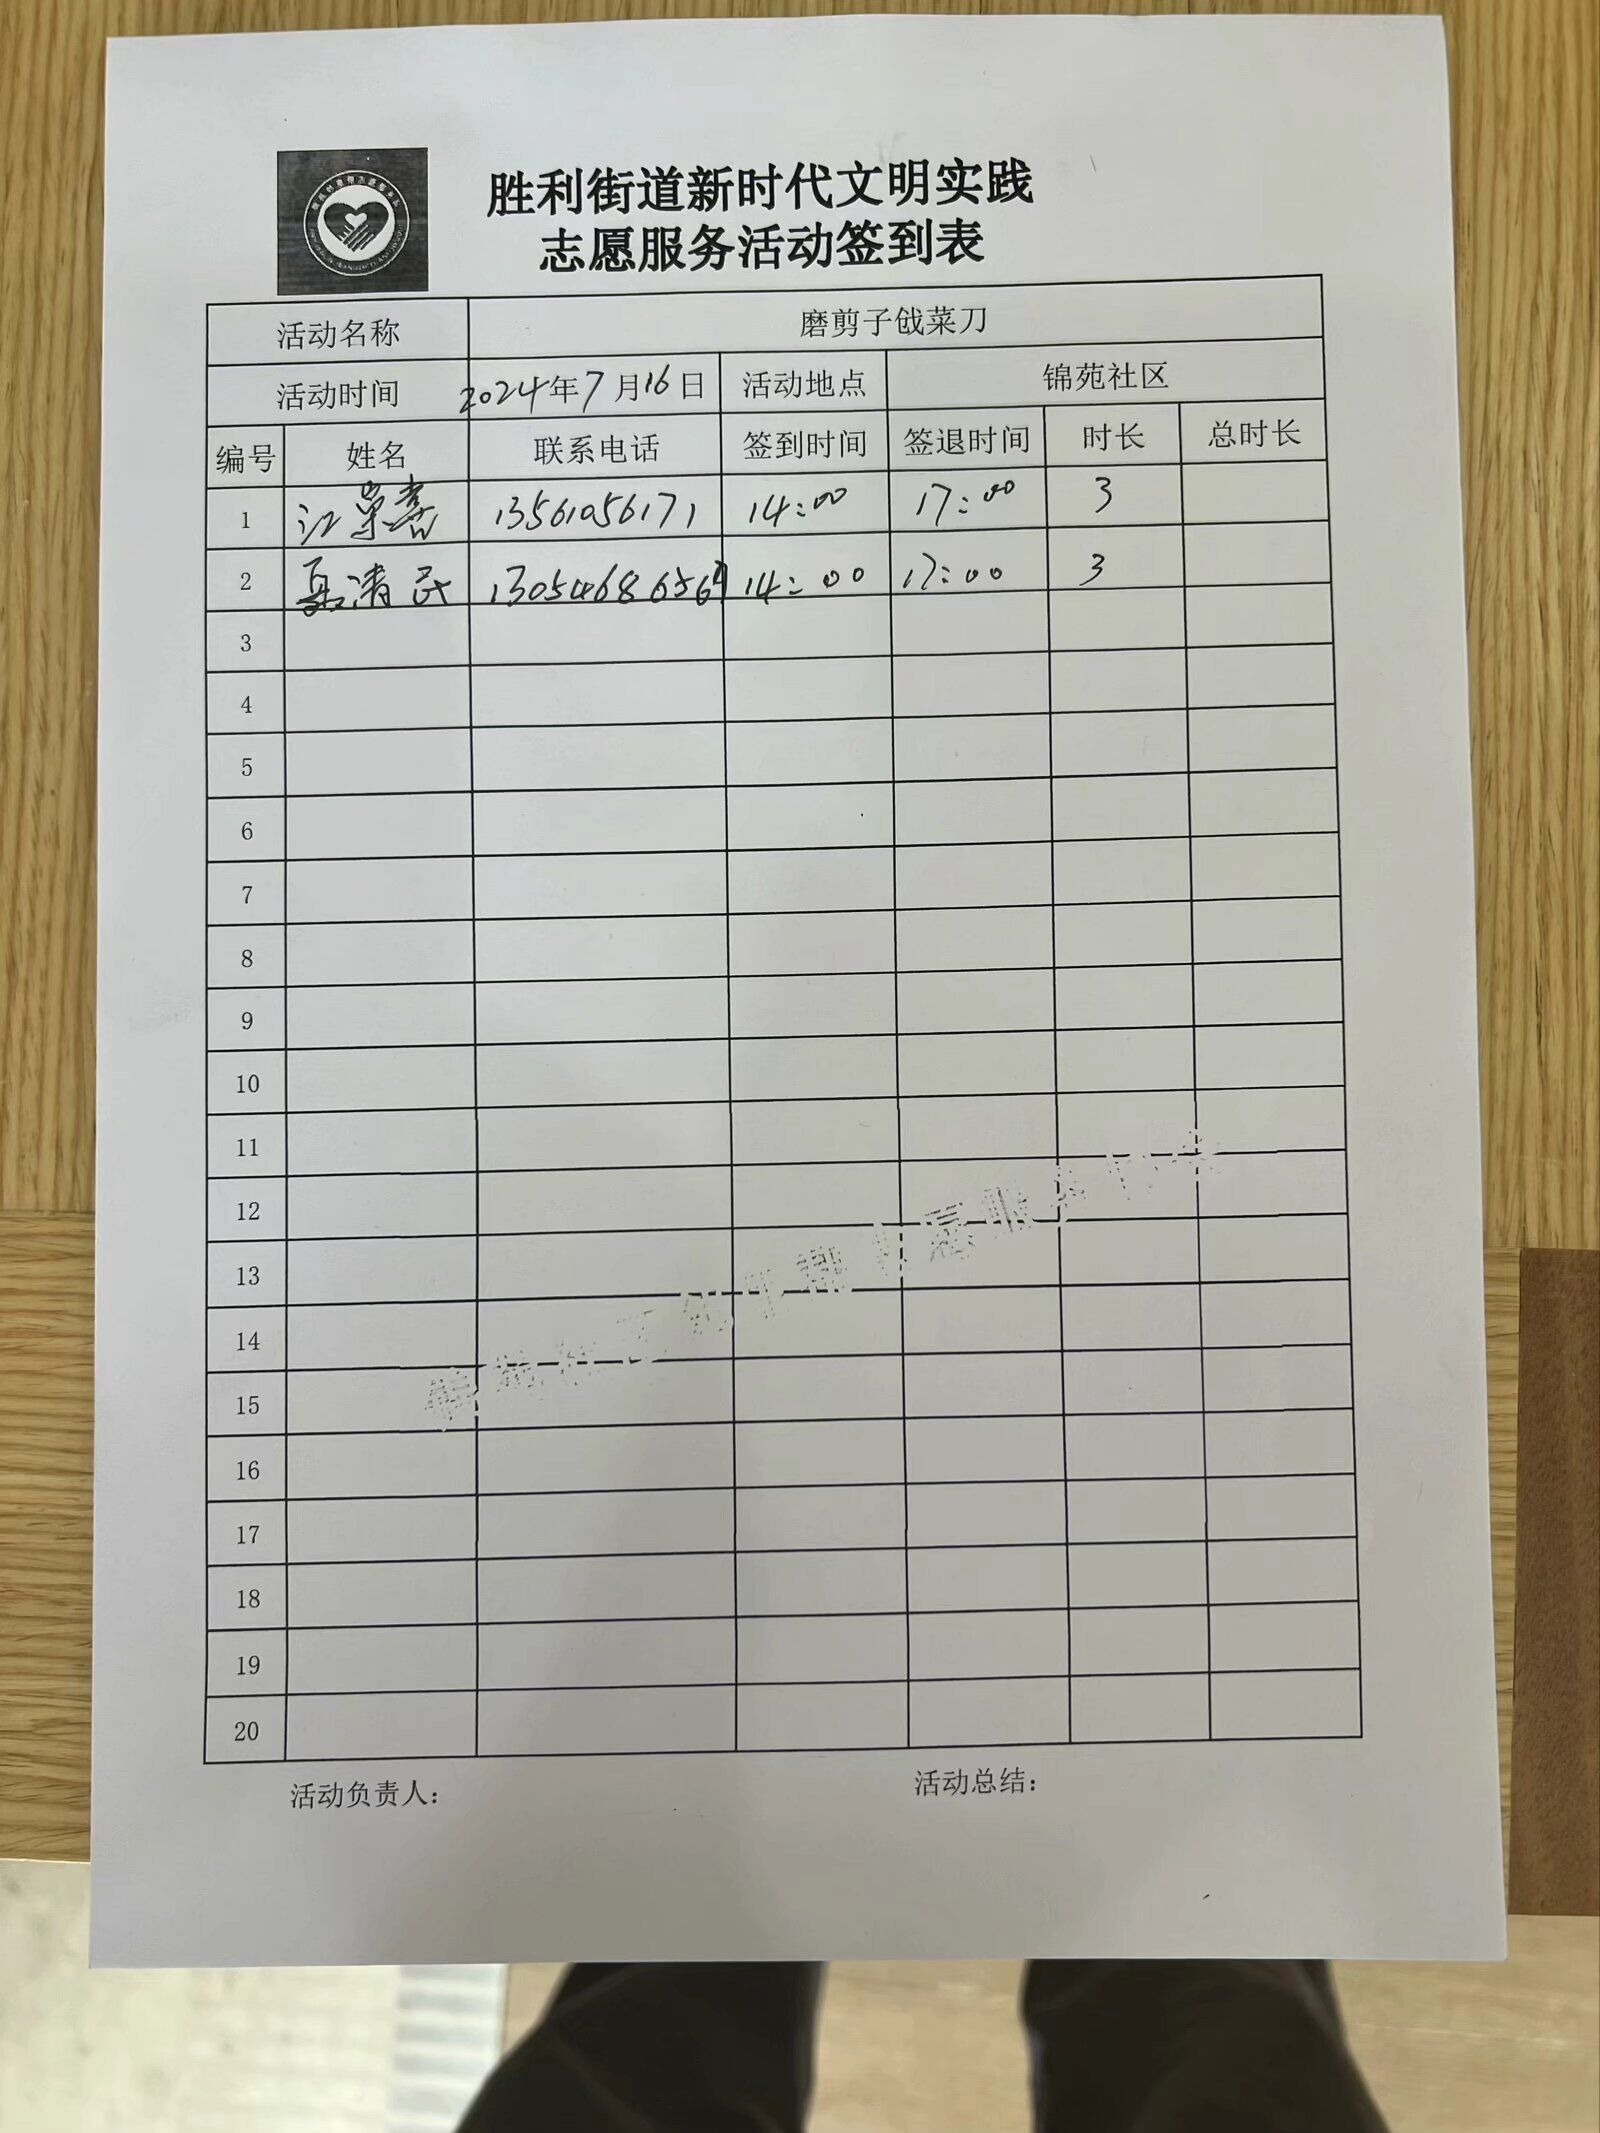 胜利街道新时代文明实践
志愿服务活动签到表
活动名称 磨剪子戗菜刀
活动时间 2024年7月16日 活动地点 锦苑社区
编号 姓名 联系电话 签到时间 签退时间 时长 总时长
1 江荣喜 13561056171 14:00 17:00 3
2 聂清民 1305468656 14:00 17:00 3
3
4
5
6
7
8
9
10
11
12
13
14
15
16
17
18
19
20
活动负责人: 活动总结: